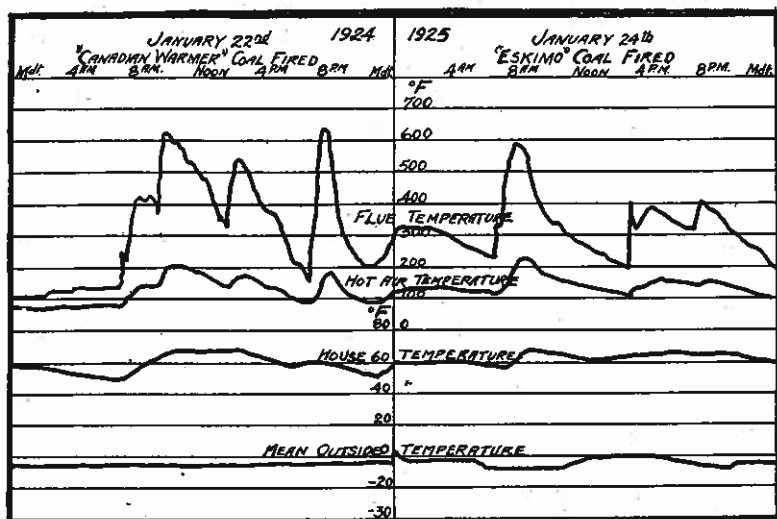 JANUARY 22nd 1924
"CANADIAN WARMER" COAL FIRED
Mdt. 4 AM 8 AM. NOON 4 PM 8 PM Mdt.
1925 JANUARY 24th
"ESKIMO" COAL FIRED
4 AM 8 AM NOON 4 P.M. 8 P.M. Mdt.
°F
700
600
500
400
FLUE TEMPERATURE
300
200
HOT AIR TEMPERATURE
100
°F
80 0
HOUSE 60 TEMPERATURE
40
20
MEAN OUTSIDE 0 TEMPERATURE
-20
-30